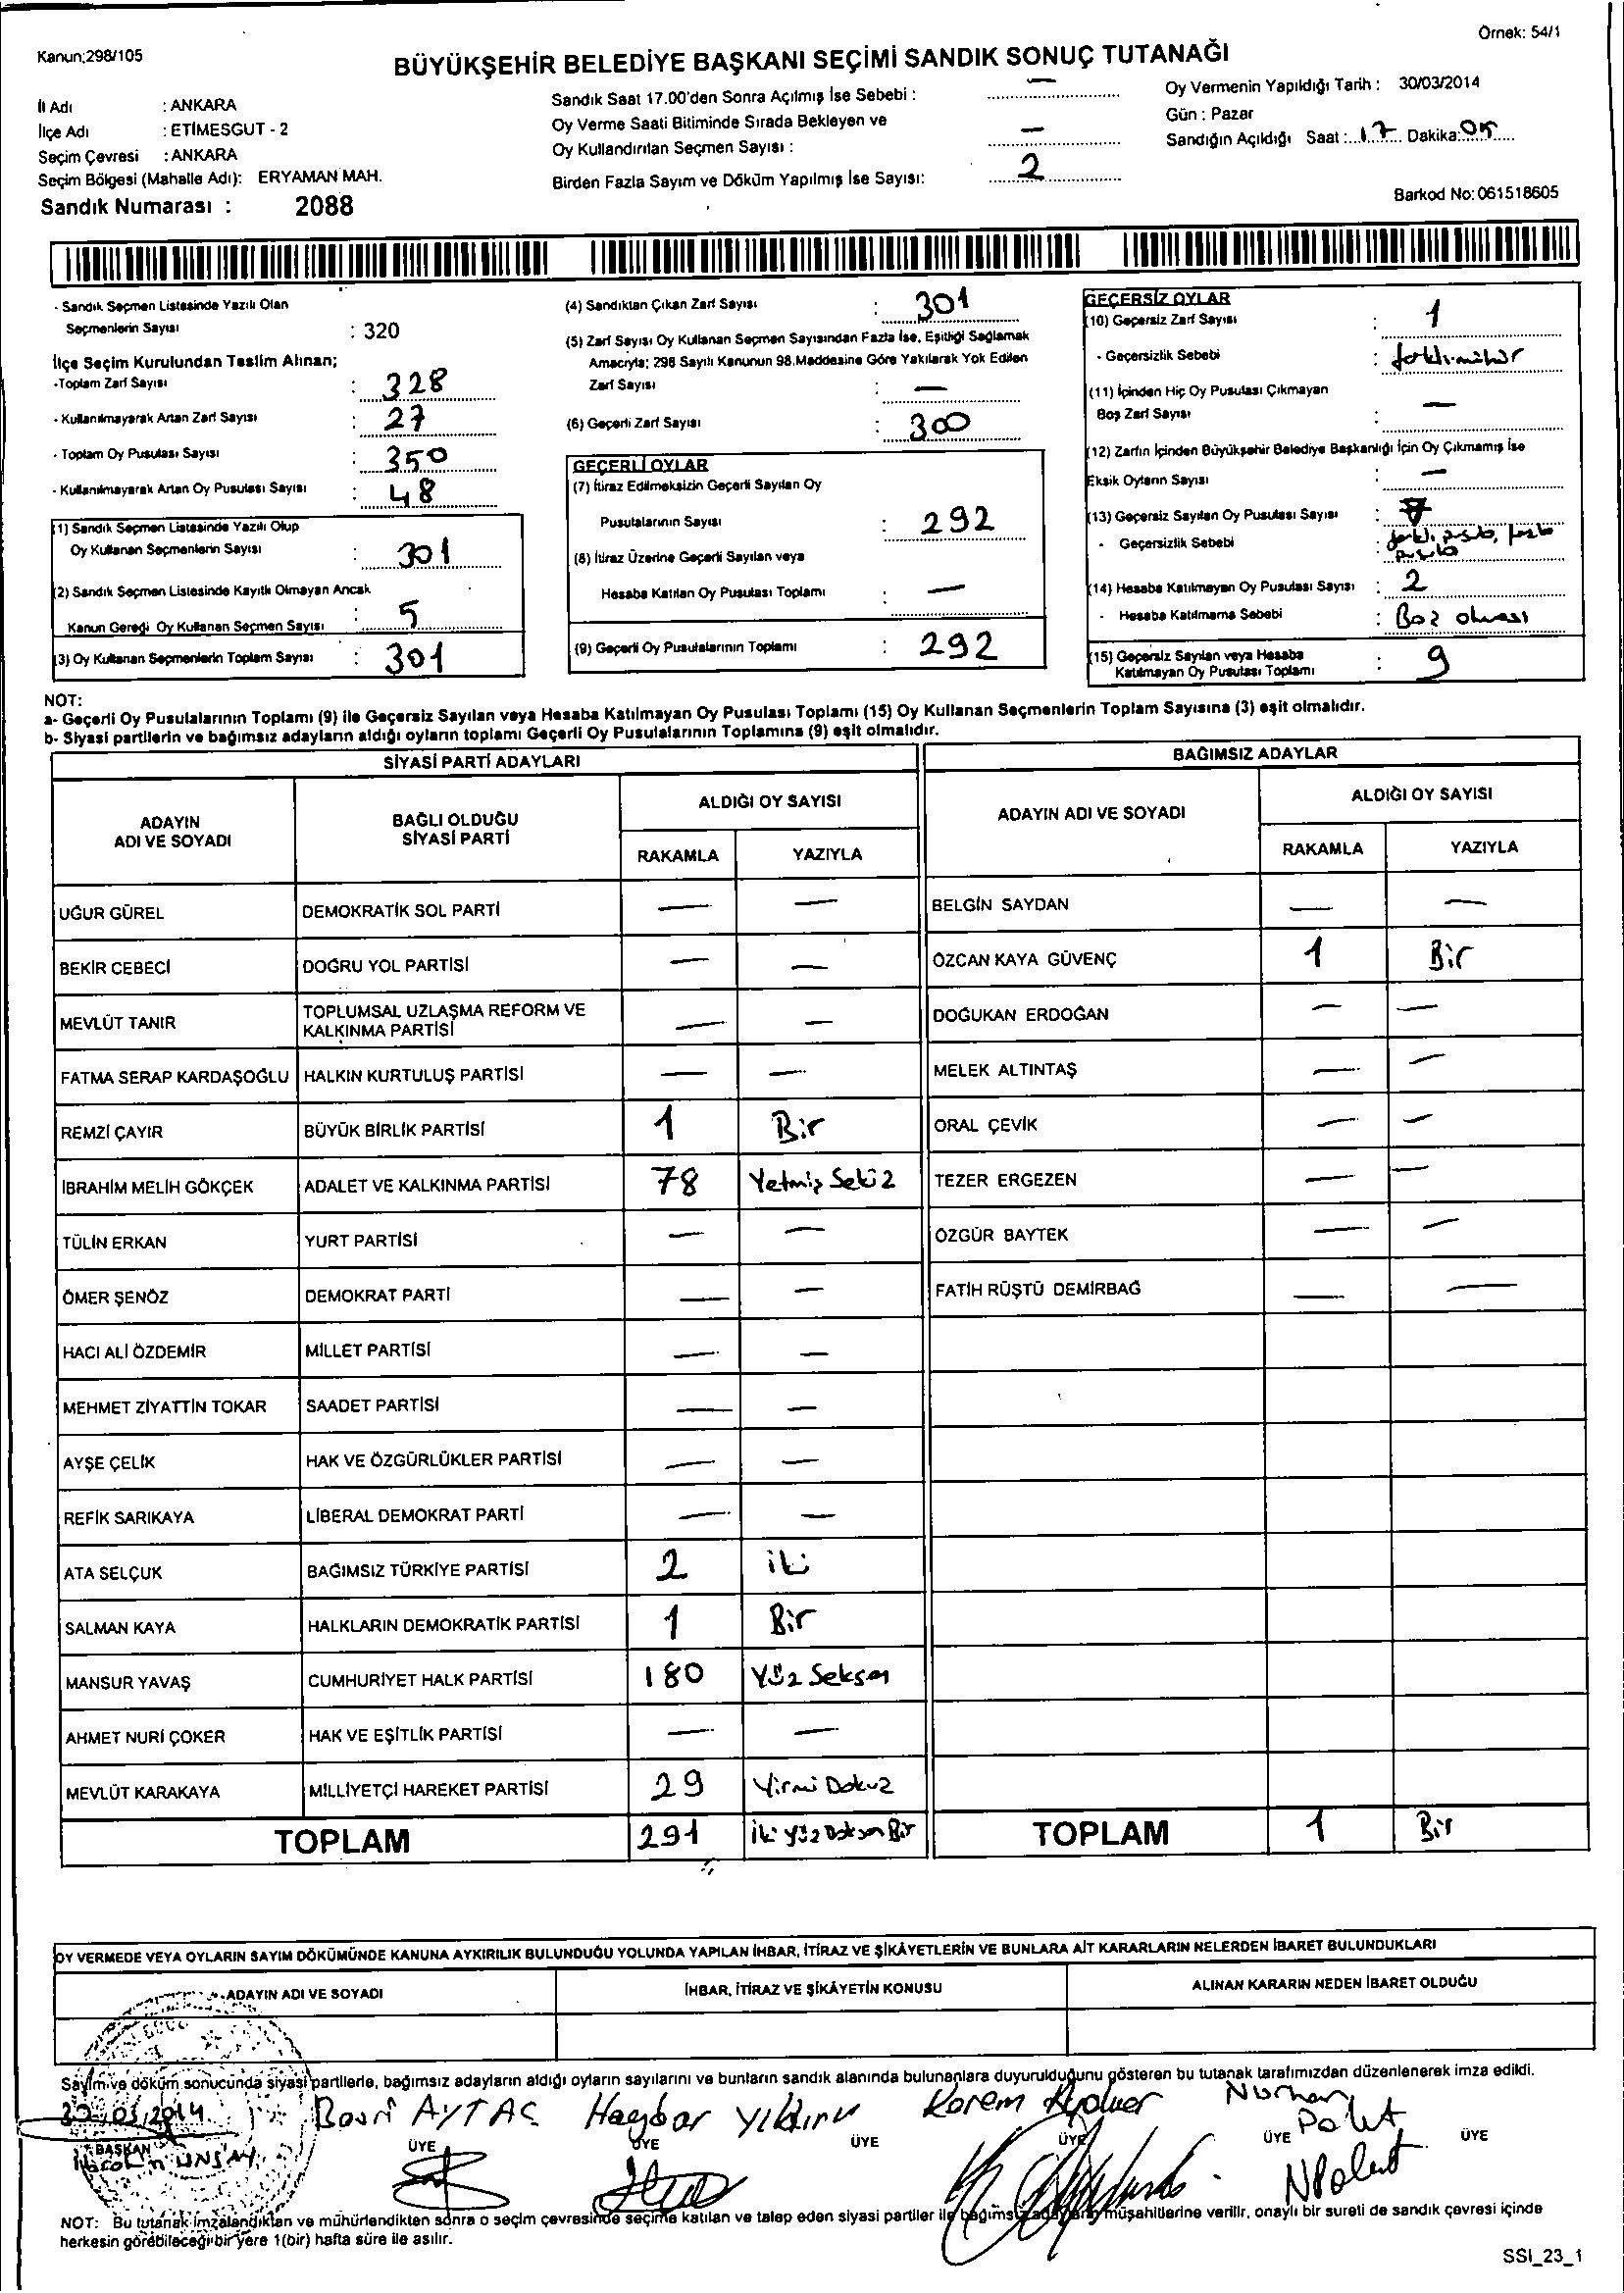 Kanun;298/105
Örnek: 54/1
BÜYÜKŞEHİR BELEDİYE BAŞKANI SEÇİMİ SANDIK SONUÇ TUTANAĞI
İl Adı : ANKARA
İlçe Adı : ETİMESGUT - 2
Seçim Çevresi : ANKARA
Seçim Bölgesi (Mahalle Adı): ERYAMAN MAH.
Sandık Numarası : 2088
Sandık Saat 17.00'den Sonra Açılmış İse Sebebi : —
Oy Verme Saati Bitiminde Sırada Bekleyen ve
Oy Kullandırılan Seçmen Sayısı : —
Birden Fazla Sayım ve Döküm Yapılmış İse Sayısı: 2
Oy Vermenin Yapıldığı Tarih : 30/03/2014
Gün : Pazar
Sandığın Açıldığı Saat : 17 Dakika: 05
Barkod No: 061518605
- Sandık Seçmen Listesinde Yazılı Olan
Seçmenlerin Sayısı : 320
İlçe Seçim Kurulundan Teslim Alınan;
-Toplam Zarf Sayısı : 328
- Kullanılmayarak Artan Zarf Sayısı : 27
- Toplam Oy Pusulası Sayısı : 350
- Kullanılmayarak Artan Oy Pusulası Sayısı : 48
(1) Sandık Seçmen Listesinde Yazılı Olup
Oy Kullanan Seçmenlerin Sayısı : 301
(2) Sandık Seçmen Listesinde Kayıtlı Olmayan Ancak
Kanun Gereği Oy Kullanan Seçmen Sayısı : 5
(3) Oy Kullanan Seçmenlerin Toplam Sayısı : 301
(4) Sandıktan Çıkan Zarf Sayısı : 301
(5) Zarf Sayısı Oy Kullanan Seçmen Sayısından Fazla İse, Eşitliği Sağlamak
Amacıyla; 298 Sayılı Kanunun 98.Maddesine Göre Yakılarak Yok Edilen
Zarf Sayısı : —
(6) Geçerli Zarf Sayısı : 300
GEÇERLİ OYLAR
(7) İtiraz Edilmeksizin Geçerli Sayılan Oy
Pusulalarının Sayısı : 292
(8) İtiraz Üzerine Geçerli Sayılan veya
Hesaba Katılan Oy Pusulası Toplamı : —
(9) Geçerli Oy Pusulalarının Toplamı : 292
GEÇERSİZ OYLAR
(10) Geçersiz Zarf Sayısı : 1
- Geçersizlik Sebebi : farklı mühür
(11) İçinden Hiç Oy Pusulası Çıkmayan
Boş Zarf Sayısı : —
(12) Zarfın İçinden Büyükşehir Belediye Başkanlığı İçin Oy Çıkmamış İse
Eksik Oyların Sayısı : —
(13) Geçersiz Sayılan Oy Pusulası Sayısı : 7
- Geçersizlik Sebebi : farklı pusula, fazla
pusula
(14) Hesaba Katılmayan Oy Pusulası Sayısı : 2
- Hesaba Katılmama Sebebi : Boş olması
(15) Geçersiz Sayılan veya Hesaba
Katılmayan Oy Pusulası Toplamı : 9
NOT:
a- Geçerli Oy Pusulalarının Toplamı (9) ile Geçersiz Sayılan veya Hesaba Katılmayan Oy Pusulası Toplamı (15) Oy Kullanan Seçmenlerin Toplam Sayısına (3) eşit olmalıdır.
b- Siyasi partilerin ve bağımsız adayların aldığı oyların toplamı Geçerli Oy Pusulalarının Toplamına (9) eşit olmalıdır.
SİYASİ PARTİ ADAYLARI
ADAYIN
ADI VE SOYADI
BAĞLI OLDUĞU
SİYASİ PARTİ
ALDIĞI OY SAYISI
RAKAMLA YAZIYLA
UĞUR GÜREL DEMOKRATİK SOL PARTİ — —
BEKİR CEBECİ DOĞRU YOL PARTİSİ — —
MEVLÜT TANIR TOPLUMSAL UZLAŞMA REFORM VE
KALKINMA PARTİSİ — —
FATMA SERAP KARDAŞOĞLU HALKIN KURTULUŞ PARTİSİ — —
REMZİ ÇAYIR BÜYÜK BİRLİK PARTİSİ 1 Bir
İBRAHİM MELİH GÖKÇEK ADALET VE KALKINMA PARTİSİ 78 Yetmiş Sekiz
TÜLİN ERKAN YURT PARTİSİ — —
ÖMER ŞENÖZ DEMOKRAT PARTİ — —
HACI ALİ ÖZDEMİR MİLLET PARTİSİ — —
MEHMET ZİYATTİN TOKAR SAADET PARTİSİ — —
AYŞE ÇELİK HAK VE ÖZGÜRLÜKLER PARTİSİ — —
REFİK SARIKAYA LİBERAL DEMOKRAT PARTİ — —
ATA SELÇUK BAĞIMSIZ TÜRKİYE PARTİSİ 2 iki
SALMAN KAYA HALKLARIN DEMOKRATİK PARTİSİ 1 Bir
MANSUR YAVAŞ CUMHURİYET HALK PARTİSİ 180 Yüz Seksen
AHMET NURİ ÇOKER HAK VE EŞİTLİK PARTİSİ — —
MEVLÜT KARAKAYA MİLLİYETÇİ HAREKET PARTİSİ 29 Yirmi Dokuz
TOPLAM 291 İki Yüz Doksan Bir
BAĞIMSIZ ADAYLAR
ADAYIN ADI VE SOYADI
ALDIĞI OY SAYISI
RAKAMLA YAZIYLA
BELGİN SAYDAN — —
ÖZCAN KAYA GÜVENÇ 1 Bir
DOĞUKAN ERDOĞAN — —
MELEK ALTINTAŞ — —
ORAL ÇEVİK — —
TEZER ERGEZEN — —
ÖZGÜR BAYTEK — —
FATİH RÜŞTÜ DEMİRBAĞ — —
TOPLAM 1 Bir
OY VERMEDE VEYA OYLARIN SAYIM DÖKÜMÜNDE KANUNA AYKIRILIK BULUNDUĞU YOLUNDA YAPILAN İHBAR, İTİRAZ VE ŞİKÂYETLERİN VE BUNLARA AİT KARARLARIN NELERDEN İBARET BULUNDUKLARI
ADAYIN ADI VE SOYADI
İHBAR, İTİRAZ VE ŞİKÂYETİN KONUSU
ALINAN KARARIN NEDEN İBARET OLDUĞU
Sayım ve döküm sonucunda siyasi partilerle, bağımsız adayların aldığı oyların sayılarını ve bunların sandık alanında bulunanlara duyurulduğunu gösteren bu tutanak tarafımızdan düzenlenerek imza edildi.
30.03.2014 Basri AYTAÇ Haydar Yıldırım Kerem Nurhan
Polat
BAŞKAN ÜYE ÜYE ÜYE ÜYE ÜYE ÜYE
İbrahim ÜNSAY NPolat
NOT: Bu tutanak imzalandıktan ve mühürlendikten sonra o seçim çevresinde seçime katılan ve talep eden siyasi partiler ile bağımsız adayların müşahitlerine verilir, onaylı bir sureti de sandık çevresi içinde
herkesin görebileceği bir yere 1(bir) hafta süre ile asılır.
SSI_23_1